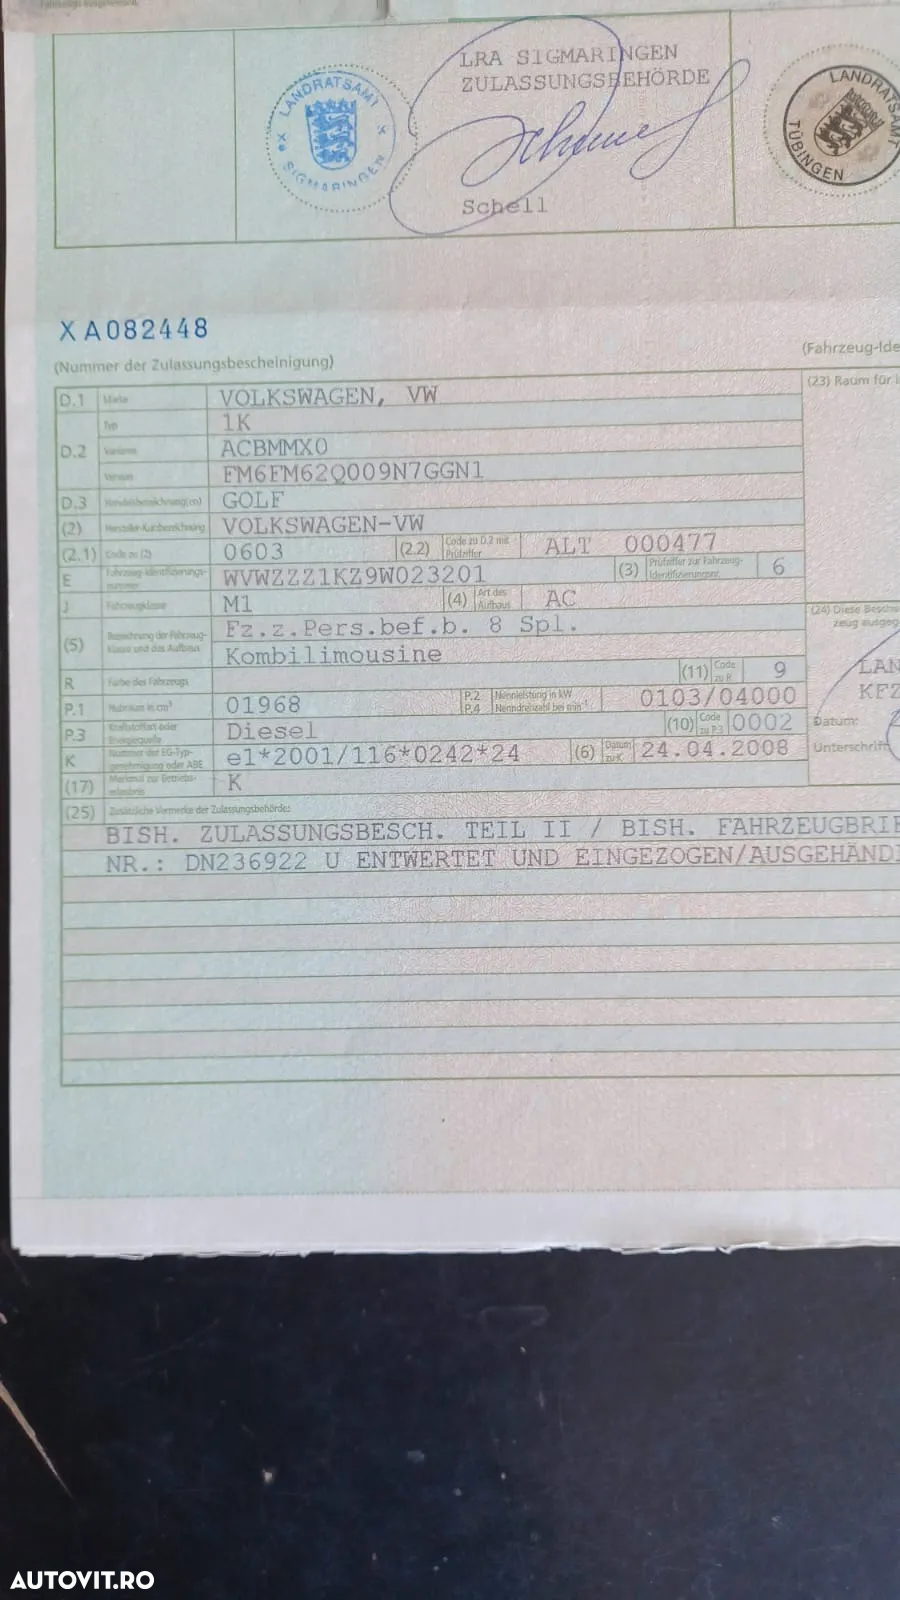 LRA SIGMARINGEN
ZULASSUNGSBEHÖRDE
LANDRATSAMT
SIGMARINGEN
Schell
LANDRATSAMT
TÜBINGEN
XA082448
(Nummer der Zulassungsbescheinigung)
(Fahrzeug-Ide
D.1 Marke VOLKSWAGEN, VW
(23) Raum für i
Typ 1K
D.2 Variante ACBMMX0
Version FM6FM62Q009N7GGN1
D.3 Handelsbezeichnung(en) GOLF
(2) Hersteller-Kurzbezeichnung VOLKSWAGEN-VW
(2.1) Code zu (2) 0603 (2.2) Code zu D.2 mit Prüfziffer ALT 000477
E Fahrzeug-Identifizierungs-nummer WVWZZZ1KZ9W023201 (3) Prüfziffer zur Fahrzeug-Identifizierungsnr. 6
J Fahrzeugklasse M1 (4) Art des Aufbaus AC
(24) Diese Besch
zeug ausgeg
(5) Bezeichnung der Fahrzeug-klasse und des Aufbaus Fz.z.Pers.bef.b. 8 Spl.
Kombilimousine
R Farbe des Fahrzeugs (11) Code zu R 9
LAN
P.1 Hubraum in cm³ 01968 P.2 P.4 Nennleistung in kW Nenndrehzahl bei min⁻¹ 0103/04000
KFZ
P.3 Kraftstoffart oder Energiequelle Diesel (10) Code zu P.3 0002
Datum:
K Nummer der EG-Typ-genehmigung oder ABE e1*2001/116*0242*24 (6) Datum zu K 24.04.2008
Unterschrift
(17) Merkmal zur Betriebs-erlaubnis K
(25) Zusätzliche Vermerke der Zulassungsbehörde:
BISH. ZULASSUNGSBESCH. TEIL II / BISH. FAHRZEUGBRIE
NR.: DN236922 U ENTWERTET UND EINGEZOGEN/AUSGEHÄND
AUTOVIT.RO